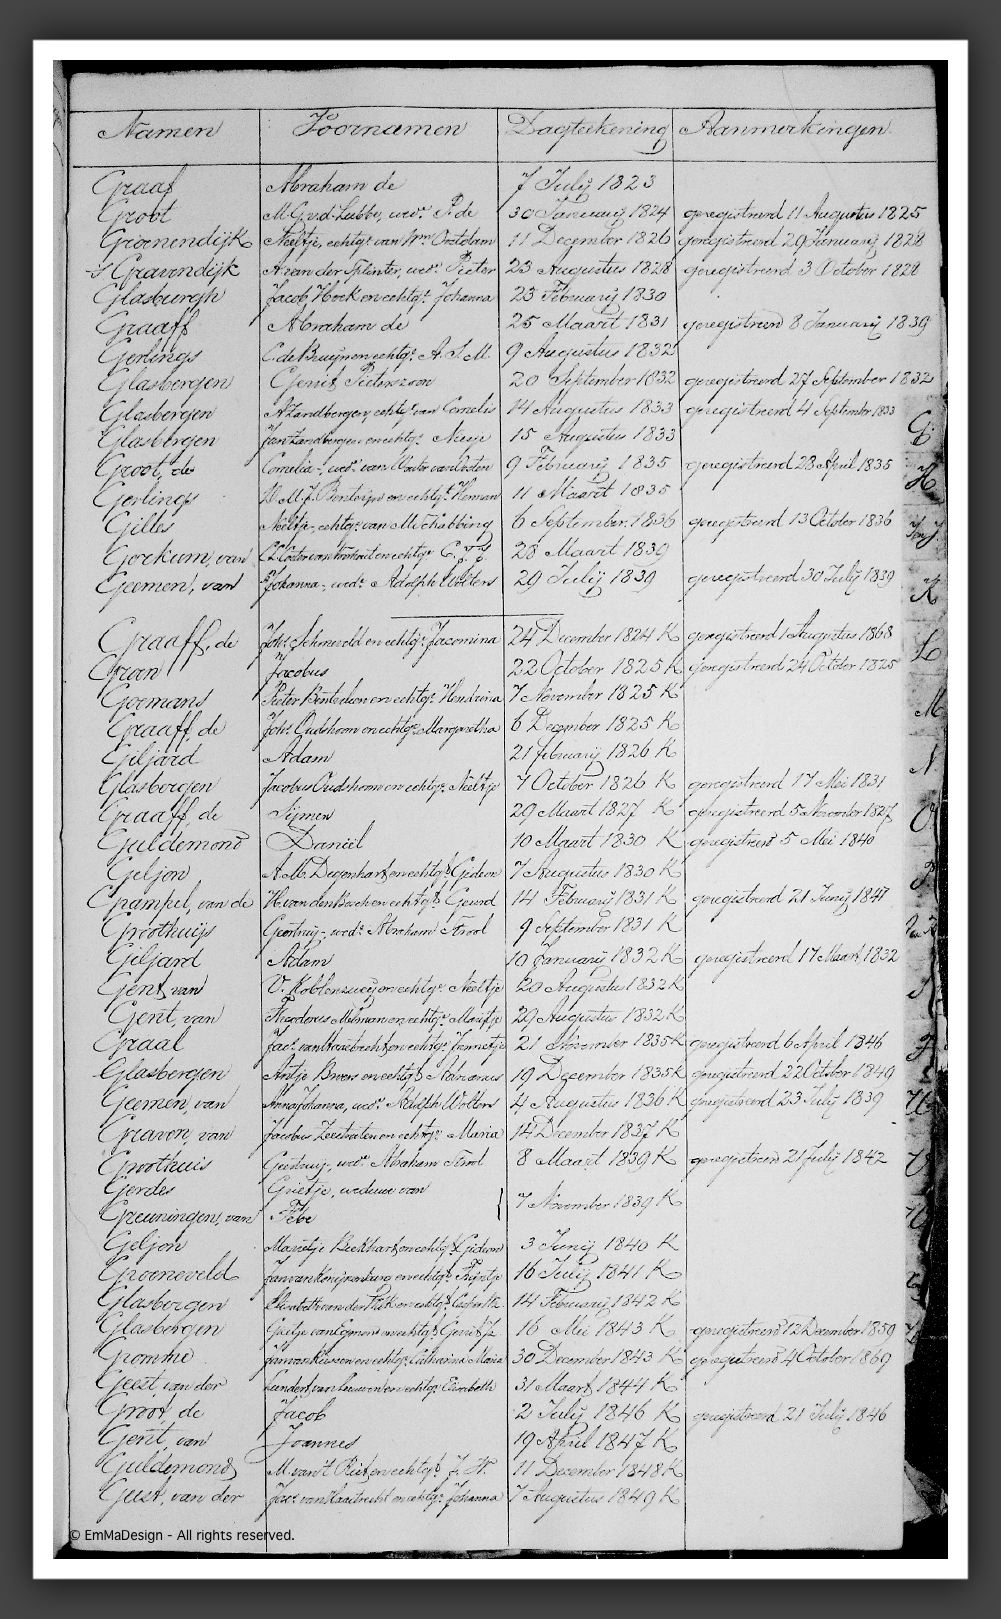 Namen Voornamen Dagteekening Aanmerkingen
Graaf Abraham de 7 July 1823
Groot M.G.v.d. Lubbe, wede. P. de 30 January 1824 geregistreerd 11 Augustus 1825
Groenendijk Neeltje, echtge. van Wm. Oostdam 11 December 1826 geregistreerd 29 January 1828
's Gravendijk A. van der Splinter, wede. Pieter 23 Augustus 1828 geregistreerd 3 October 1828
Glasburgh Jacob Hoek en echtge. Johanna 23 February 1830
Graaff Abraham de 25 Maart 1831 geregistreerd 8 January 1839
Gerlings C. de Bruijn en echtge. A.S.M. 9 Augustus 1832
Glasbergen Gerrit Pieterszoon 20 September 1832 geregistreerd 27 September 1832
Glasbergen A. Zandbergen, echtge. van Cornelis 14 Augustus 1833 geregistreerd 4 September 1833
Glasbergen Jan Zandbergen en echtge. 15 Augustus 1833
Groot, de Cornelia, wede. van Wouter van Oosten 9 February 1835 geregistreerd 28 April 1835
Gerlings en echtge. Herman 11 Maart 1835
Gilles Neeltje, echtge. van M. Schabbing 6 September 1836 geregistreerd 13 October 1836
Gorkum, van en echtge. C.J.J. 28 Maart 1839
Geemen, van Johanna, wede. Adolph Wolters 29 July 1839 geregistreerd 30 July 1839
Graaff, de Johs. Schoneveld en echtge. Jacomina 24 December 1824 K geregistreerd 1 Augustus 1868
Groen Jacobus 22 October 1825 K geregistreerd 24 October 1825
Goemans Pieter en echtge. Hendrina 7 November 1825 K
Graaff, de Johs. Oudshoorn en echtge. Margaretha 6 December 1825 K
Giljard Adam 21 february 1826 K
Glasbergen Jacobus Oudshoorn en echtge. Neeltje 7 October 1826 K geregistreerd 17 Mei 1831
Graaff, de Sijmen 29 Maart 1827 K geregistreerd 5 November 1827
Guldemond Daniël 10 Maart 1830 K geregistreerd 5 Mei 1840
Geljon A.M. Degenhart en echtgt. Gideon 7 Augustus 1830 K
Grampel, van de H. van den Bosch en echtgt. Geurd 14 February 1831 K geregistreerd 21 Junij 1847
Groothuijs Geertruij, wede. Abraham Strool 9 September 1831 K
Giljard Adam 10 January 1832 K geregistreerd 17 Maart 1832
Gent, van V. Koblenzer en echtge. Neeltje 20 Augustus 1832 K
Gent, van Theodorus Milman en echtge. Marijtje 29 Augustus 1832 K
Graal Jacs. van Haastrecht en echtge. Jannetje 21 November 1835 K geregistreerd 6 April 1846
Glasbergen Antje Broers en echtgt. Adrianus 19 December 1835 K geregistreerd 22 October 1849
Geemen, van Anna Johanna, wede. Adolph Wolters 4 Augustus 1836 K geregistreerd 23 July 1839
Graven, van Jacobus Zeestraten en echtge. Maria 14 December 1837 K
Groothuis Geertruij, wede. Abraham Strool 8 Maart 1839 K geregistreerd 21 July 1842
Gerdes Grietje, weduwe van
Greuningen, van Febe 7 November 1839 K
Geljon Marijtje Beekhart en echtgt. Gideon 3 Junij 1840 K
Groeneveld Jan van Konijnenburg en echtgt. Trijntje 16 July 1841 K
Glasbergen Elisabeth van der en echtgt. 14 February 1842 K
Glasbergen Grietje van Egmond en echtgt. Gerrit Jz 16 Mei 1843 K geregistreerd 12 December 1859
Gromme Jan van Rossen en echtge. Catharina Maria 30 December 1843 K geregistreerd 4 October 1869
Geest, van der Leendert van Leeuwen en echtge. Elisabeth 31 Maart 1844 K
Groot, de Jacob 2 July 1846 K geregistreerd 21 July 1846
Gent, van Joannes 19 April 1847 K
Guldemond M. van 't Riet en echtgt. J.H. 11 December 1848 K
Geest, van der Jacs. van Haastrecht en echtge. Johanna 7 Augustus 1849 K
G.
H
K
L
M
N
O
P
© EmMaDesign - All rights reserved.